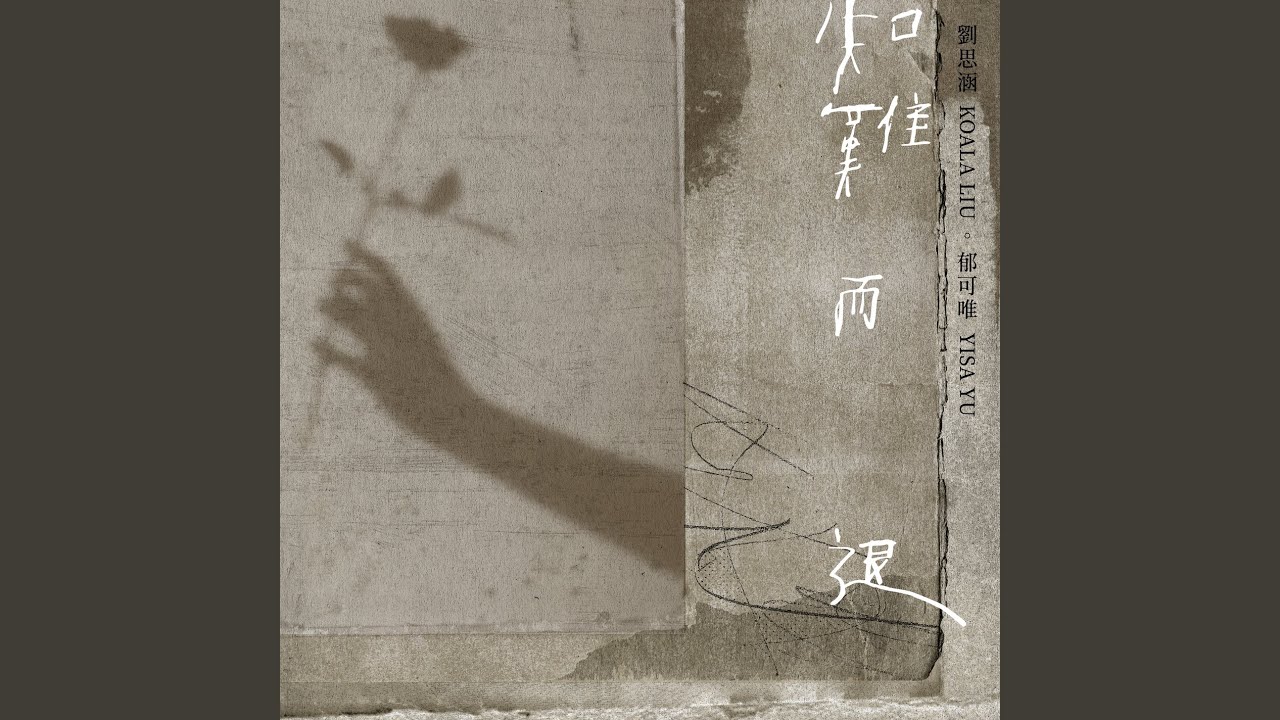 知難而退
劉思涵 KOALA LIU 。 郁可唯 YISA YU